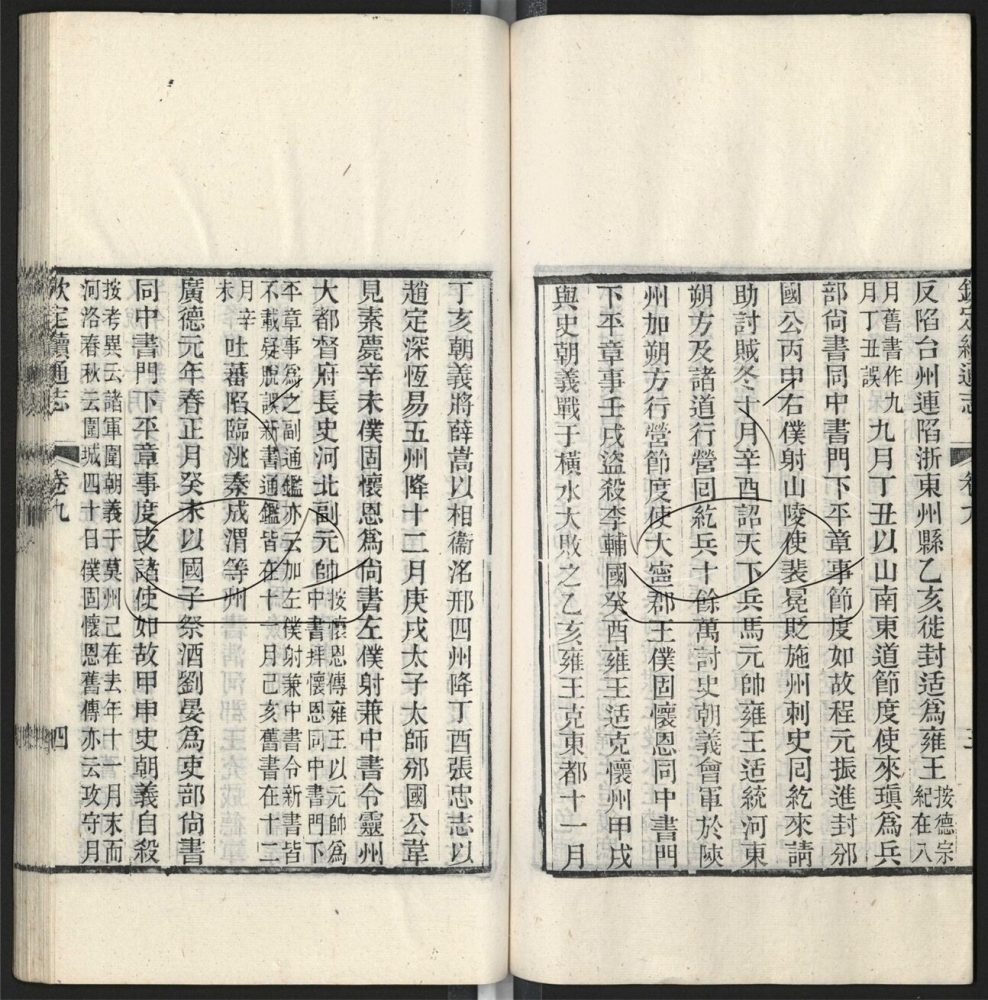 欽定續通志
卷九
三
反陷台州連陷浙東州縣乙亥徙封适爲雍王按德宗紀在八
月舊書作九月丁丑誤九月丁丑以山南東道節度使來瑱爲兵
部尚書同中書門下平章事節度如故程元振進封邠
國公丙申右僕射山陵使裴冕貶施州刺史囘紇來請
助討賊冬十月辛酉詔天下兵馬元帥雍王适統河東
朔方及諸道行營囘紇兵十餘萬討史朝義會軍於陝
州加朔方行營節度使大寧郡王僕固懷恩同中書門
下平章事壬戌盜殺李輔國癸酉雍王适克懷州甲戌
與史朝義戰于橫水大敗之乙亥雍王克東都十一月
丁亥朝義將薛嵩以相衞洺邢四州降丁酉張忠志以
趙定深恆易五州降十二月庚戌太子太師邠國公韋
見素薨辛未僕固懷恩爲尚書左僕射兼中書令靈州
大都督府長史河北副元帥按懷恩傳雍王以元帥爲中書拜懷恩同中書門下
平章事爲之副通鑑亦云加左僕射兼中書令新書皆不載疑脫誤新書通鑑皆在十一月己亥舊書在十二
月辛未吐蕃陷臨洮秦成渭等州
廣德元年春正月癸未以國子祭酒劉晏爲吏部尚書
同中書門下平章事度支諸使如故甲申史朝義自殺
按考異云諸軍圍朝義于莫州己在去年十一月末而河洛春秋云圍城四十日僕固懷恩舊傳亦云攻守月
欽定續通志
卷九
四